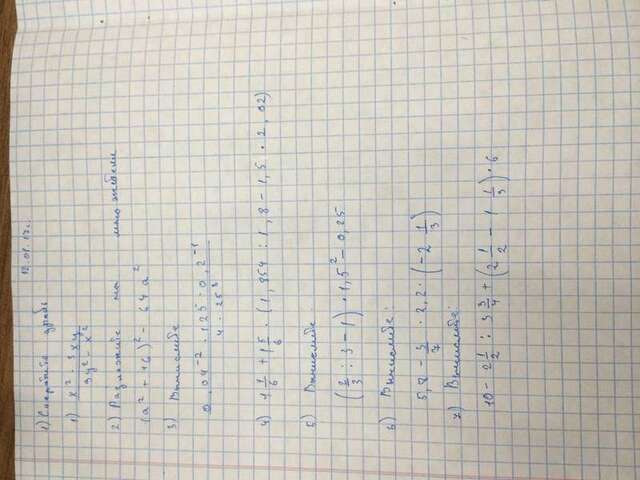 12.01.17г.
1) Сократите дробь
1) x² - 3xy / 9y² - x²
2) Разложите на множители
(a² + 16)² - 64a²
3) Вычислите
0,04⁻² · 125 · 0,2⁻¹ / 4 · 25³
4) 1 1/6 + 1 5/6 · (1,854 : 1,8 - 1,5 · 2,02)
5) Вычислите:
(2/3 : 3 - 1) · 1,5² - 0,25
6) Вычислите:
5,8 - 3/7 · 2,2 · (-2 1/3)
7) Вычислите:
10 - 2 1/2 : 3 3/4 + (2 1/2 - 1 1/3) · 6